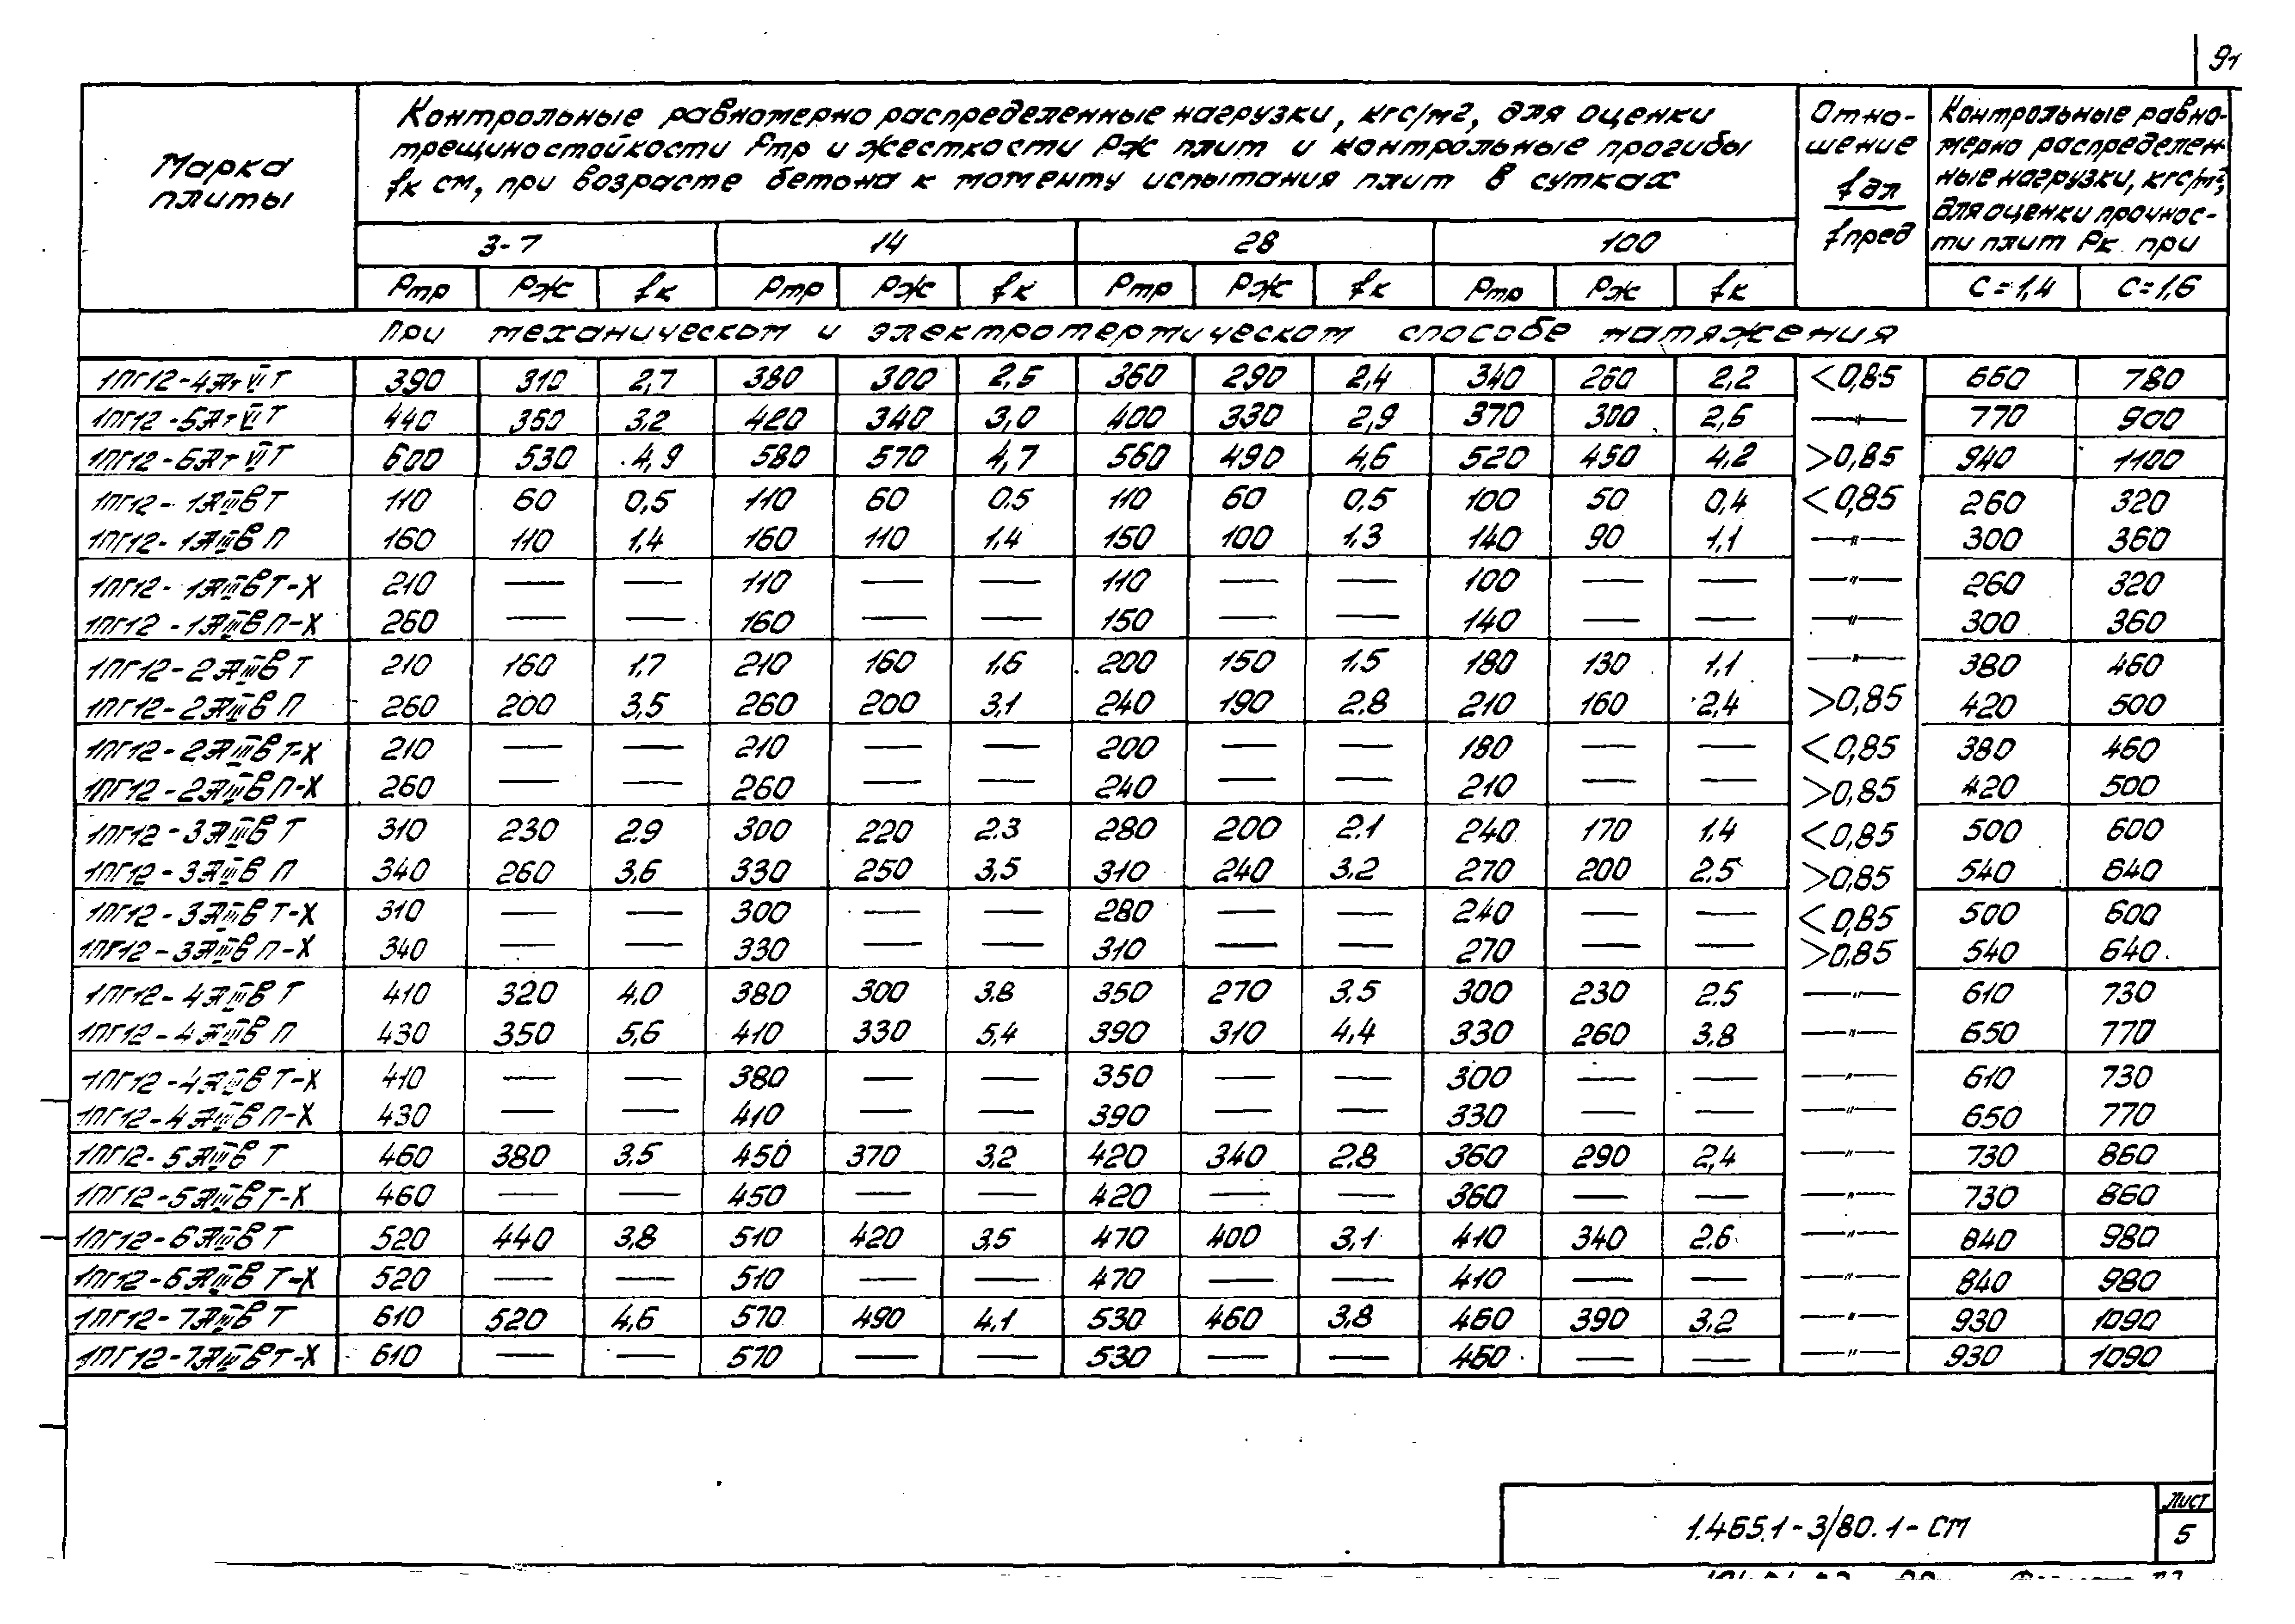 91
Марка плиты
Контрольные равномерно распределенные нагрузки, кгс/м2, для оценки
трещиностойкости Ртр и жесткости Рж плит и контрольные прогибы
fк см, при возрасте бетона к моменту испытания плит в сутках
Отно-
шение
fдл
fпред
Контрольные равно-
мерно распределен-
ные нагрузки, кгс/м²,
для оценки прочнос-
ти плит Рк при
3-7 14 28 100
Ртр Рж fк Ртр Рж fк Ртр Рж fк Ртр Рж fк С=1,4 С=1,6
при механическом и электротермическом способе натяжения
1ПГ12-4АтVIТ 390 310 2,7 380 300 2,5 360 290 2,4 340 260 2,2 <0,85 660 780
1ПГ12-5АтVIТ 440 360 3,2 420 340 3,0 400 330 2,9 370 300 2,6 —"— 770 900
1ПГ12-6АтVIТ 600 530 4,9 580 570 4,7 560 490 4,6 520 450 4,2 >0,85 940 1100
1ПГ12-1АIIIвТ 110 60 0,5 110 60 0.5 110 60 0,5 100 50 0,4 <0,85 260 320
1ПГ12-1АIIIвП 160 110 1,4 160 110 1,4 150 100 1,3 140 90 1,1 —"— 300 360
1ПГ12-1АIIIвТ-Х 210 — — 110 — — 110 — — 100 — — —"— 260 320
1ПГ12-1АIIIвП-Х 260 — — 160 — — 150 — — 140 — — —"— 300 360
1ПГ12-2АIIIвТ 210 160 1,7 210 160 1,6 200 150 1.5 180 130 1,1 —"— 380 460
1ПГ12-2АIIIвП 260 200 3,5 260 200 3,1 240 190 2,8 210 160 2,4 >0,85 420 500
1ПГ12-2АIIIвТ-Х 210 — — 210 — — 200 — — 180 — — <0,85 380 460
1ПГ12-2АIIIвП-Х 260 — — 260 — — 240 — — 210 — — >0,85 420 500
1ПГ12-3АIIIвТ 310 230 2.9 300 220 2.3 280 200 2.1 240 170 1,4 <0,85 500 600
1ПГ12-3АIIIвП 340 260 3,6 330 250 3,5 310 240 3,2 270 200 2.5 >0,85 540 640
1ПГ12-3АIIIвТ-Х 310 — — 300 — — 280 — — 240 — — <0,85 500 600
1ПГ12-3АIIIвП-Х 340 — — 330 — — 310 — — 270 — — >0,85 540 640
1ПГ12-4АIIIвТ 410 320 4.0 380 300 3.8 350 270 3.5 300 230 2.5 —"— 610 730
1ПГ12-4АIIIвП 430 350 5,6 410 330 5,4 390 310 4,4 330 260 3,8 —"— 650 770
1ПГ12-4АIIIвТ-Х 410 — — 380 — — 350 — — 300 — — —"— 610 730
1ПГ12-4АIIIвП-Х 430 — — 410 — — 390 — — 330 — — —"— 650 770
1ПГ12-5АIIIвТ 460 380 3,5 450 370 3,2 420 340 2,8 360 290 2,4 —"— 730 860
1ПГ12-5АIIIвТ-Х 460 — — 450 — — 420 — — 360 — — —"— 730 860
1ПГ12-6АIIIвТ 520 440 3,8 510 420 3,5 470 400 3,1 410 340 2.6 —"— 840 980
1ПГ12-6АIIIвТ-Х 520 — — 510 — — 470 — — 410 — — —"— 840 980
1ПГ12-7АIIIвТ 610 520 4,6 570 490 4,1 530 460 3,8 460 390 3,2 —"— 930 1090
1ПГ12-7АIIIвТ-Х 610 — — 570 — — 530 — — 460 — — —"— 930 1090
1.465.1-3/80.1-СМ
Лист
5